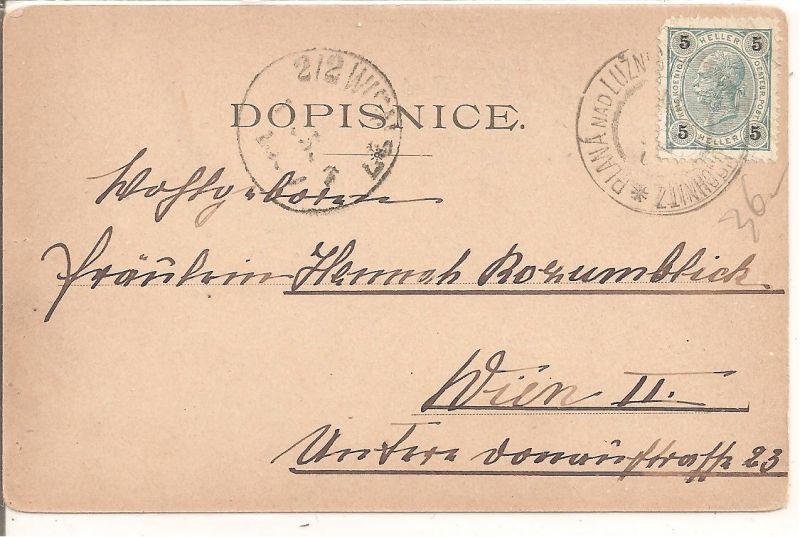 5 HELLER 5
KAIS. KOENIGL. OESTERR. POST
5 HELLER 5
PLANÁ NAD LUŽN
SCHNITZ
2/2 WIEN
DOPISNICE.
Wohlgeboren
Fräulein Hennah Rozumblick
Wien II.
Untere Donaustrasse 23
36